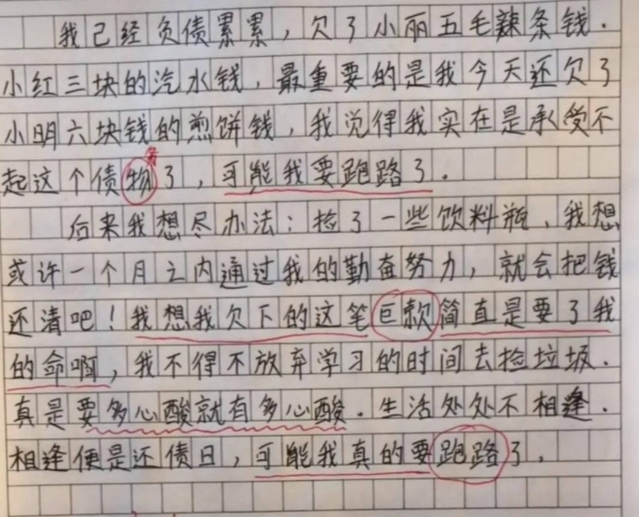 我已经负债累累，欠了小丽五毛辣条钱．
小红三块的汽水钱，最重要的是我今天还欠了
小明六块钱的煎饼钱，我觉得我实在是承受不
务
起这个债物了，可能我要跑路了．
后来我想尽办法：捡了一些饮料瓶、我想
或许一个月之内通过我的勤奋努力，就会把钱
还清吧！我想我欠下的这笔巨款简直是要了我
的命啊，我不得不放弃学习的时间去捡垃圾．
真是要多心酸就有多心酸．生活处处不相逢．
相逢便是还债日，可能我真的要跑路了．